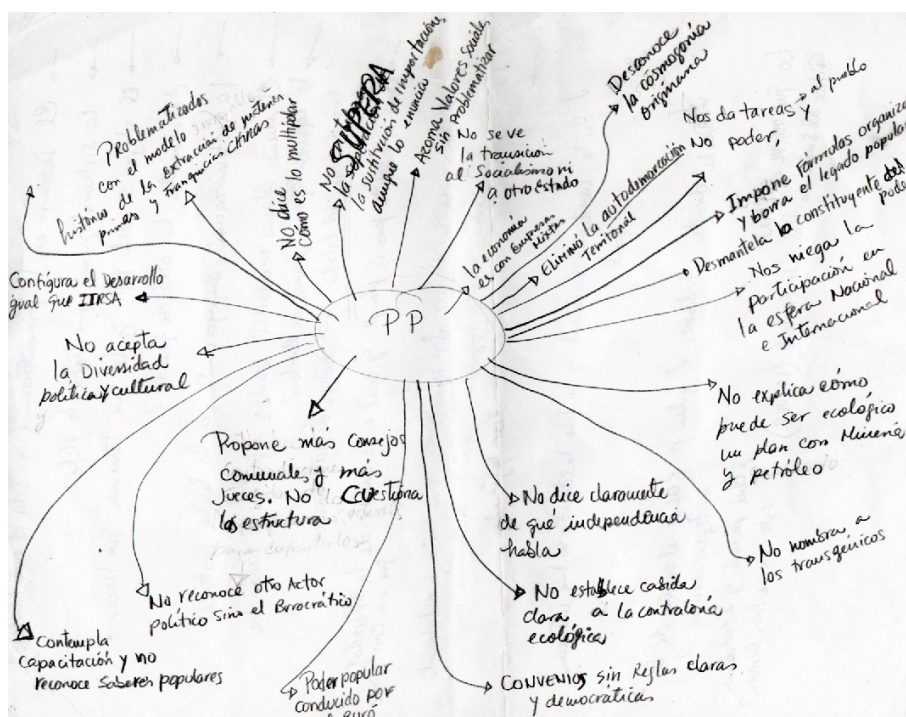 PP
Problematizados
con el modelo
histórico de la extracción de materias
primas y Franquicias CHINAS
No dice
como es lo multipolar
SUPERA
la sustitución de importación,
aunque lo enuncia
Acoma Valores sociales
sin Problematizar
No se ve
la transición
al Socialismo ni
a otro estado
la economía
es con Empresas
Mixtas
Desconoce
la cosmogonía
originaria
Eliminó la autodemarcación
Territorial
Nos da tareas y → al pueblo
No poder,
Impone Fórmulas organiza
y borra el legado popular
Desmantela lo constituyente del
pode
Nos niega la
participación en
la esfera Nacional
e Internacional
No explica cómo
puede ser ecológico
un plan con Minería
y petróleo
No nombra a
los transgénicos
No dice claramente
de qué independencia
habla
No establece cabida
clara a la contraloría
ecológica
CONVENIOS sin Reglas claras
y democráticas
Poder popular
conducido por
Propone más Consejos
Comunales y más
Jueces. No Cuestiona
la estructura
No reconoce otro Actor
político sino el Burocrático
Contempla
capacitación y no
reconoce Saberes populares
No acepta
la Diversidad
política y cultural
Configura el Desarrollo
igual que IIRSA